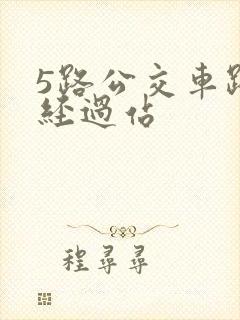 5路公交車路
經過佔
程尋尋